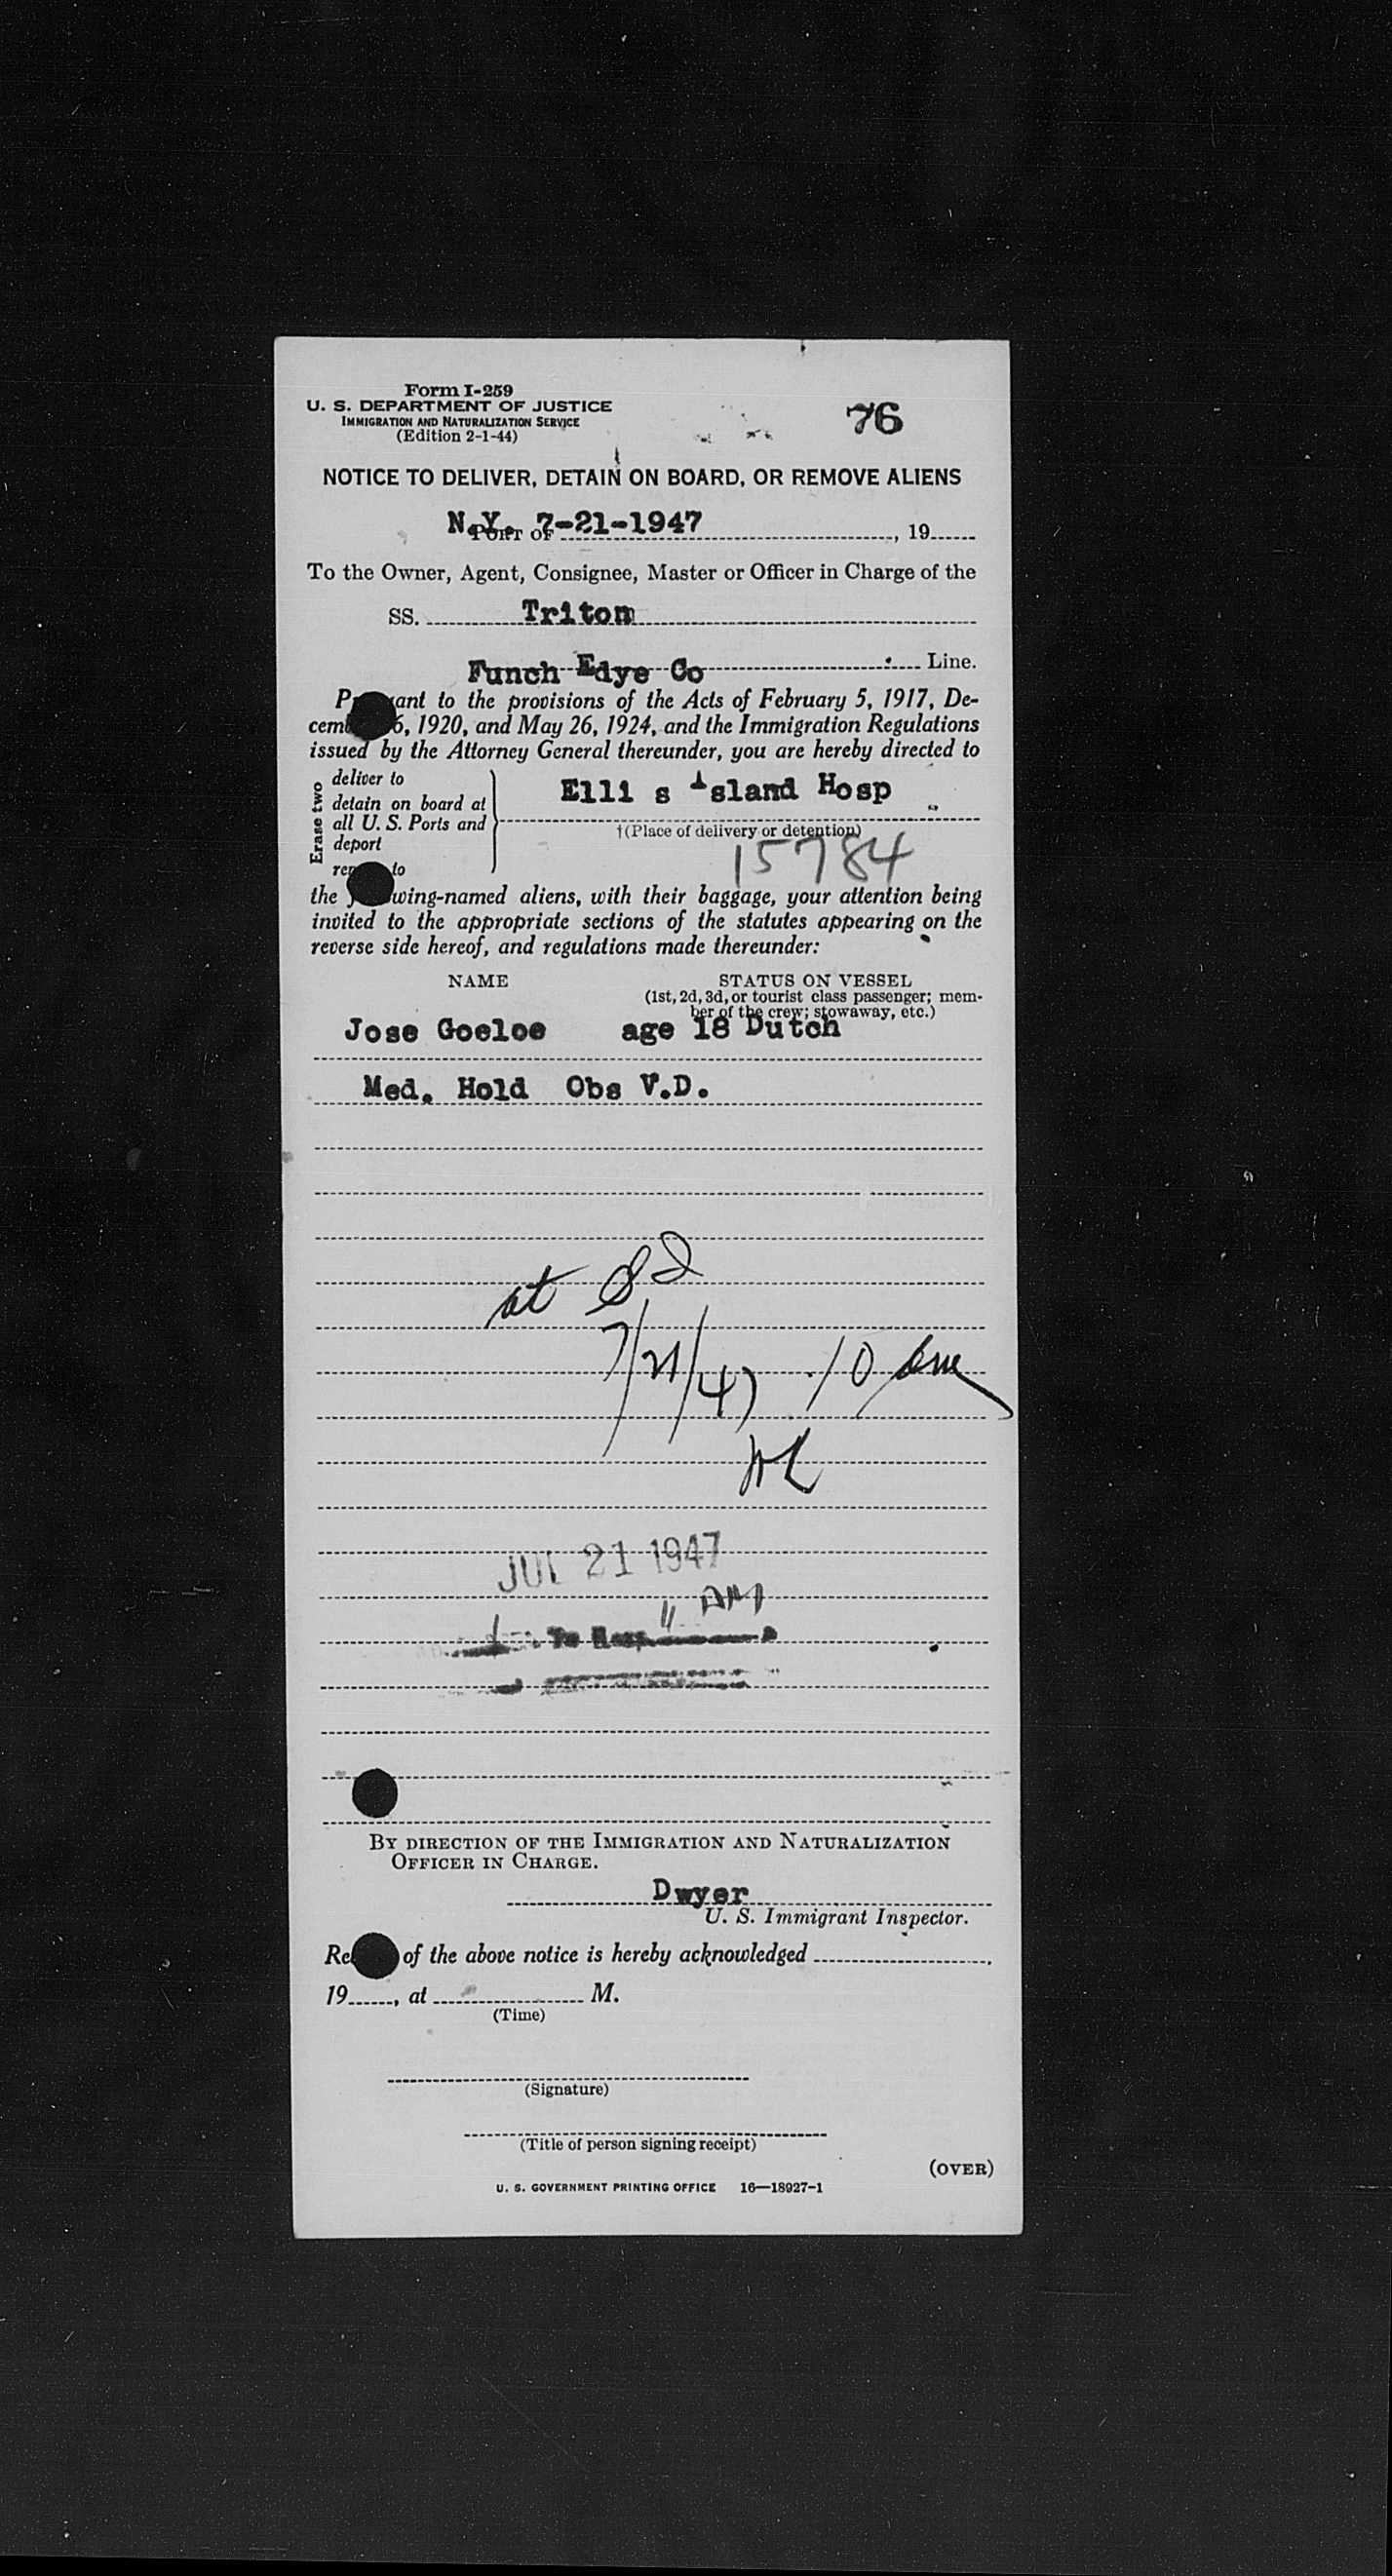 Form I-259
U. S. DEPARTMENT OF JUSTICE
IMMIGRATION AND NATURALIZATION SERVICE
(Edition 2-1-44)
76
NOTICE TO DELIVER, DETAIN ON BOARD, OR REMOVE ALIENS
PORT OF N.Y. 7-21-1947, 19
To the Owner, Agent, Consignee, Master or Officer in Charge of the
SS. Triton
Funch Edye Co Line.
ant to the provisions of the Acts of February 5, 1917, De-
cem 6, 1920, and May 26, 1924, and the Immigration Regulations
issued by the Attorney General thereunder, you are hereby directed to
Erase two
deliver to
detain on board at
all U. S. Ports and
deport
to
Elli s Island Hosp
†(Place of delivery or detention)
15784
the wing-named aliens, with their baggage, your attention being
invited to the appropriate sections of the statutes appearing on the
reverse side hereof, and regulations made thereunder:
NAME
STATUS ON VESSEL
(1st, 2d, 3d, or tourist class passenger; mem-
ber of the crew; stowaway, etc.)
Jose Goeloe age 18 Dutch
Med. Hold Obs V.D.
at
7/21/47 10
JUL 21 1947
To Hosp
BY DIRECTION OF THE IMMIGRATION AND NATURALIZATION
OFFICER IN CHARGE.
Dwyer
U. S. Immigrant Inspector.
Re of the above notice is hereby acknowledged ,
19 , at M.
(Time)
(Signature)
(Title of person signing receipt)
(OVER)
U. S. GOVERNMENT PRINTING OFFICE 16—18927-1